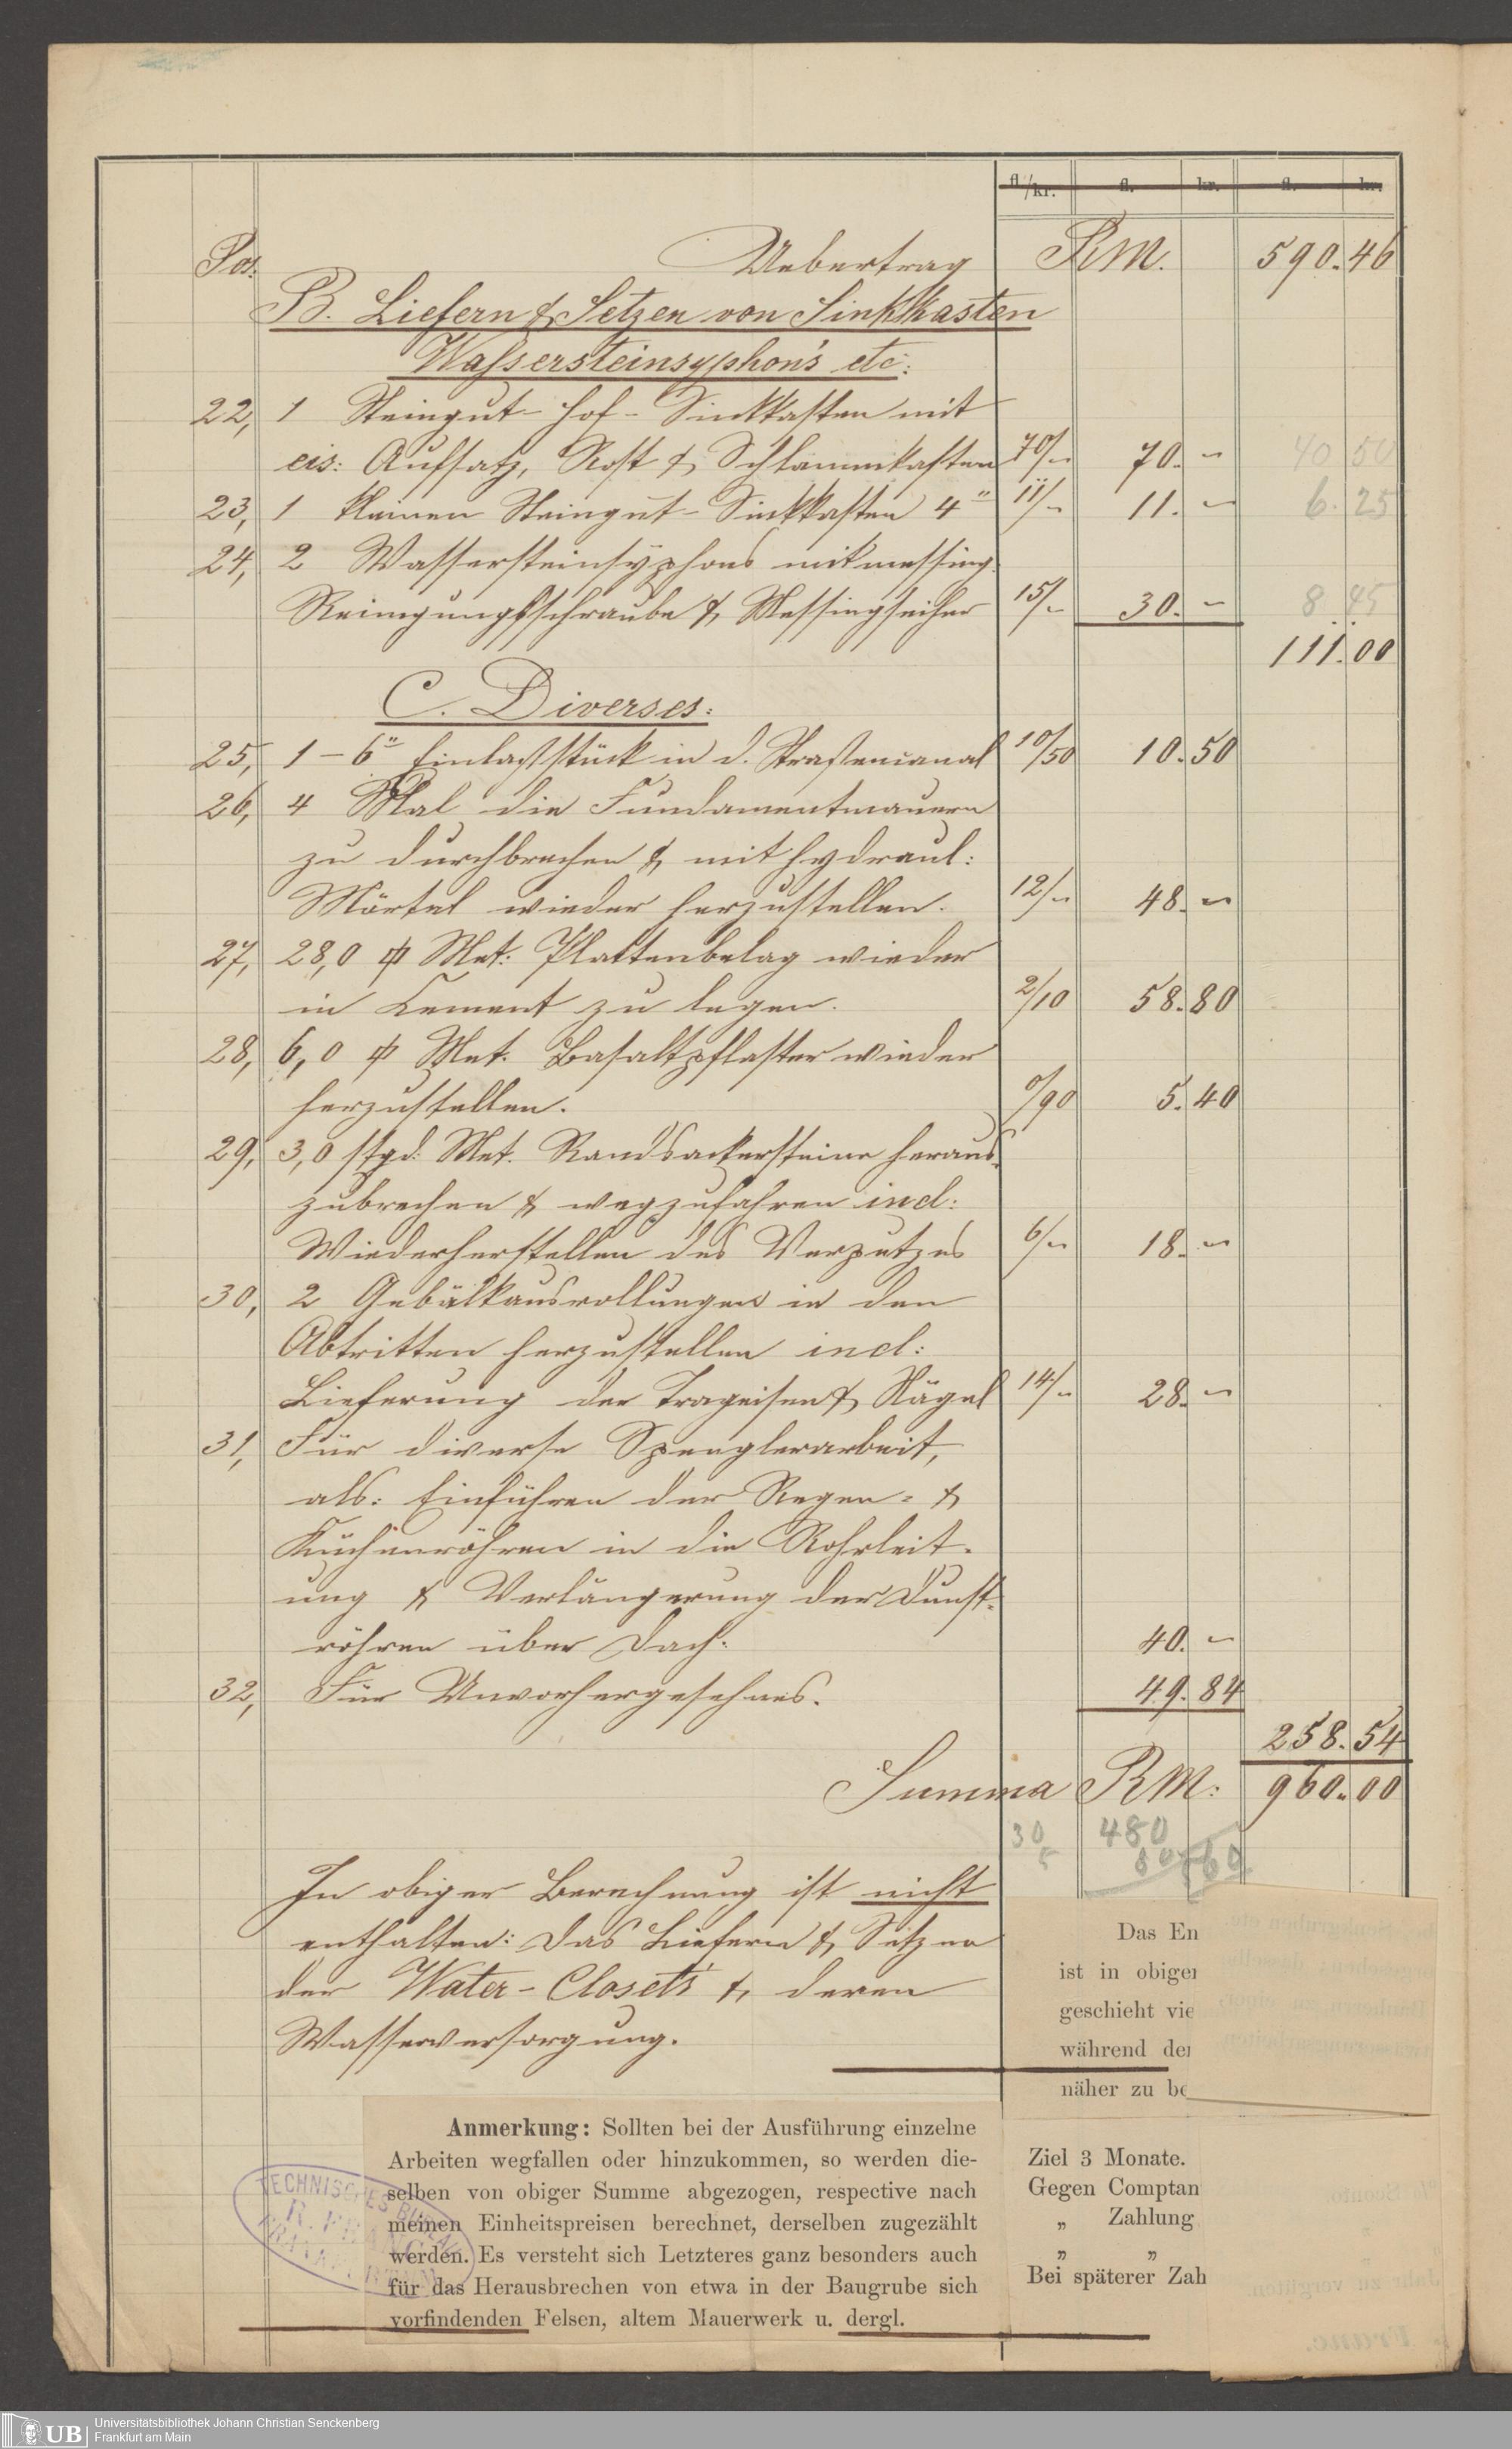 fl./kr. fl. kr. fl. kr.
Pos. Uebertrag RM. 590.46
B. Liefern & Setzen von Sinkkasten
Wassersteinsyphon's etc:
22, 1 Steingut-Hof-Sinkkasten mit
eis: Aufsatz, Rost & Schlammkasten 70/– 70.– 40 50
23, 1 kleinen Steingut-Sinkkasten 4" 11/– 11.– 6.25
24, 2 Wassersteinsyphons mit messing
Reinigungsschraube & Messingseiher 15/– 30.– 8.45
111.00
C. Diverses:
25, 1 – 6" Einlaßstück in d. Straßencanal 10/50 10.50
26, 4 Mal die Fundamentmauern
zu durchbrechen & mit hydraul:
Mörtel wieder herzustellen. 12/– 48.–
27, 28,0 Met: Plattenbelag wieder
in Cement zu legen. 2/10 58.80
28, 6,0 Met. Basaltpflaster wieder
herzustellen. 0/90 5.40
29, 3,0 stgd. Met. Randsackersteine heraus-
zubrechen & wegzufahren incl:
Wiederherstellen des Verputzes 6/– 18.–
30, 2 Gebälkausrollungen in den
Abtritten herzustellen incl:
Lieferung der Trageisen & Nägel 14/– 28.–
31, Für diverse Spenglerarbeit,
als: Einführen der Regen- &
Küchenröhren in die Rohrleit-
ung & Verlängerung der Dunst-
röhren über Dach. 40.–
32, Für Unvorhergesehnes. 49.84
258.54
Summa RM: 960.00
30 480
5
In obiger Berechnung ist nicht
enthalten: Das Liefern & Setzen
der Water-Closets & deren
Wasserversorgung.
Das En
ist in obiger
geschieht vie
während der
näher zu be
Anmerkung: Sollten bei der Ausführung einzelne
Arbeiten wegfallen oder hinzukommen, so werden die-
selben von obiger Summe abgezogen, respective nach
meinen Einheitspreisen berechnet, derselben zugezählt
werden. Es versteht sich Letzteres ganz besonders auch
für das Herausbrechen von etwa in der Baugrube sich
vorfindenden Felsen, altem Mauerwerk u. dergl.
Ziel 3 Monate.
Gegen Comptan
„ Zahlung
„ „
Bei späterer Zah
TECHNISCHES BUREAU
UB
Universitätsbibliothek Johann Christian Senckenberg
Frankfurt am Main